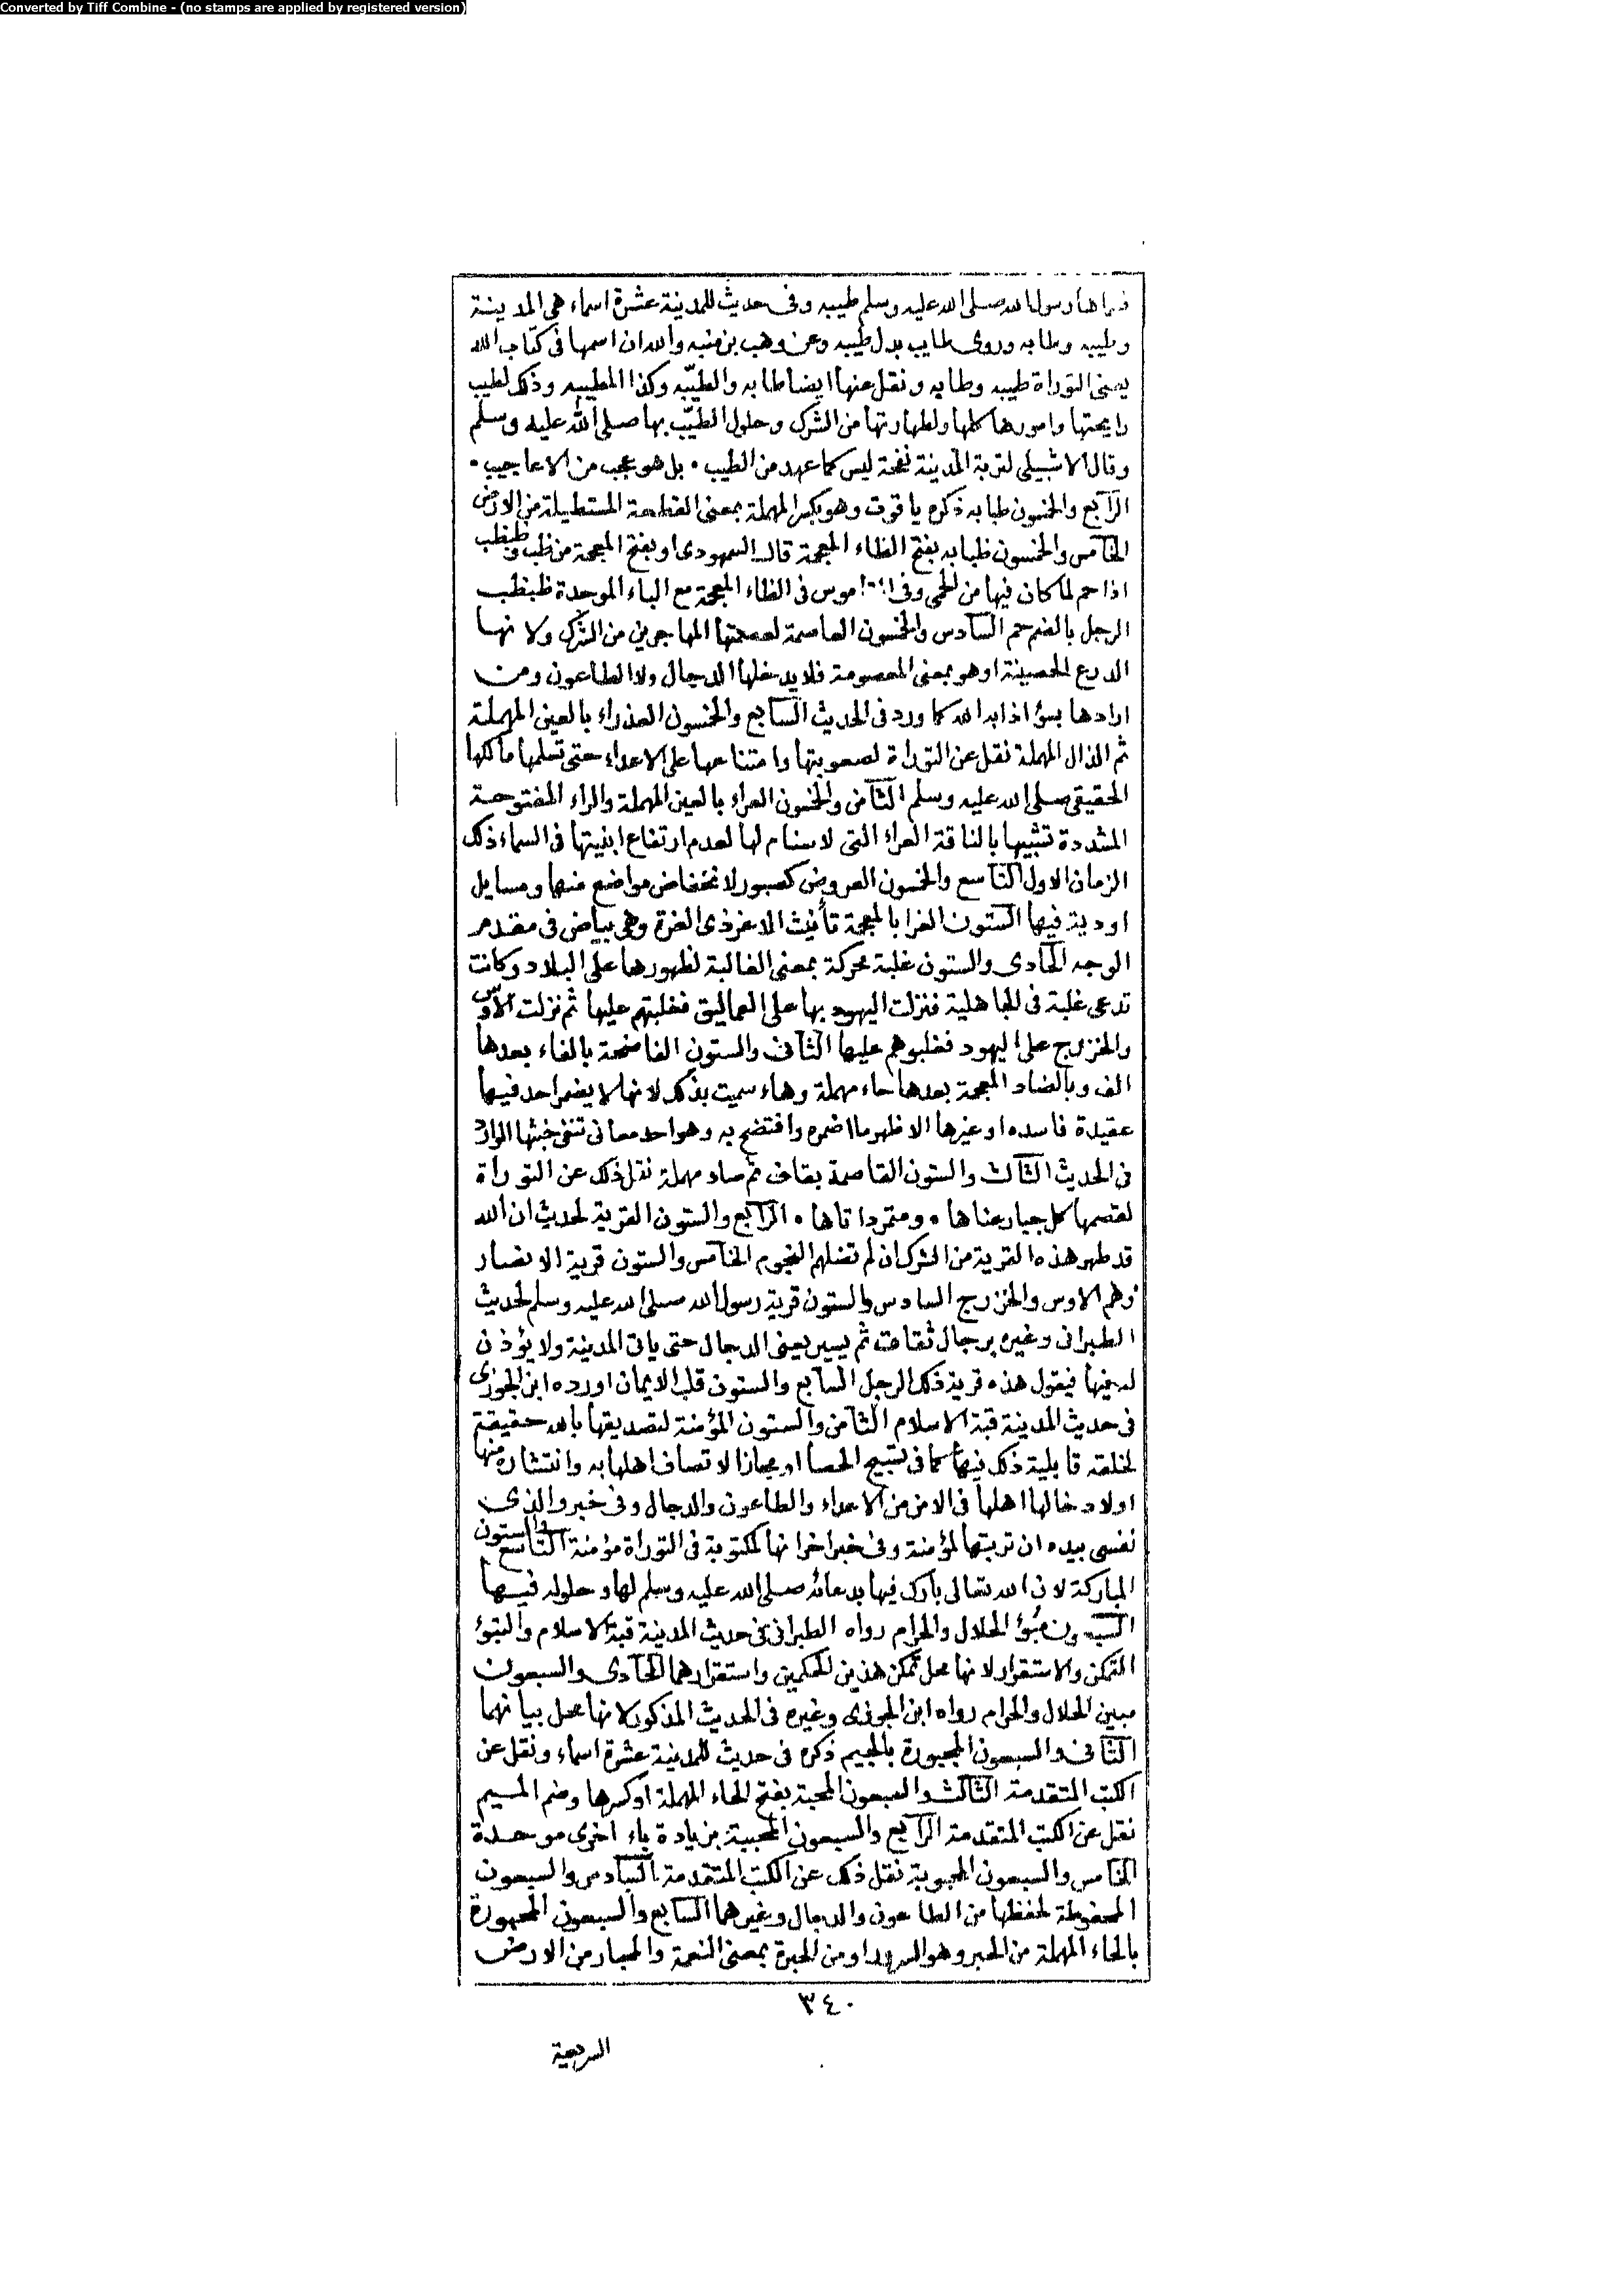 Converted by Tiff Combine - (no stamps are applied by registered version)
فسماها رسول الله صلى الله عليه وسلم طيبه وفى حديث للمدينة عشرة اسماء هى المدينة
وطيبه وطابه وروى طايب بدل طيبه وعن وهب بن منبه والله ان اسمها فى كتاب الله
يعنى التوراة طيبه وطابه ونقل عنها ايضا طابه والطيّبه وكذا المطيبه وذلك لطيب
رايحتها وامورها كلها ولطهارتها من الشرك وحلول الطيّب بها صلى الله عليه وسلم
وقال الاشبيلى لتربة المدينة نفحة ليس كما عهد من الطيب • بل هو عجب من الاعاجيب •
الرابع والخمسون طبابه ذكره ياقوت وهو بكسر المهملة بمعنى القطعة المستطيلة من الارض
الخامس والخمسون ظبابه بفتح الظاء المعجمة قال السمهودى او بفتح المعجمة من ظب وظبظب
اذا حم لما كان فيها من الحمى وفى القاموس فى الظاء المعجمة مع الباء الموحدة ظبظب
الرجل بالضم حم السادس والخمسون العاصمة لعصمتها المهاجرين من الشرك ولانها
الدرع الحصينة او هو بمعنى المعصومة فلا يدخلها الدجال ولا الطاعون ومن
ارادها بسؤ اذابه الله كما ورد فى الحديث السابع والخمسون العذراء بالعين المهملة
ثم الذال المهملة نقل عن التوراة لصعوبتها وامتناعها على الاعداء حتى تسلمها مالكها
الحقيقى صلى الله عليه وسلم الثامن والخمسون العراء بالعين المهملة والراء المفتوحة
المشددة تشبيها بالناقة العراء التى لا سنام لها لعدم ارتفاع ابنيتها فى السماء ذلك
الزمان الاول التاسع والخمسون العروض كصبور لانخفاض مواضع منها ومسايل
اودية فيها الستون الغرا بالمعجمة تأنيث الاغر ذى الغرة وهى بياض فى مقدم
الوجه الحادى والستون غلبة محركة بمعنى الغالبة لظهورها على البلاد وكانت
تدعى غلبة فى الجاهلية فنزلت اليهود بها على العماليق فغلبتهم عليها ثم نزلت الاوس
والخزرج على اليهود فغلبوهم عليها الثانى والستون الفاضحة بالفاء بعدها
الف وبالضاد المعجمة بعدها حاء مهملة وهاء سميت بذلك لانها لا يضمر احد فيها
عقيدة فاسده او غيرها الا ظهر ما اضمره وافتضح به وهو احد معانى تنفى خبثها الوارد
فى الحديث الثالث والستون القاصمة بقاف ثم صاد مهملة نقل ذلك عن التوراة
لقصمها كل جبار عناها • ومتمرد اتاها • الرابع والستون القرية لحديث ان الله
قد طهر هذه القرية من الشرك ان لم تضلهم النجوم الخامس والستون قرية الانصار
وهم الاوس والخزرج السادس والستون قرية رسول الله صلى الله عليه وسلم لحديث
الطبرانى وغيره برجال ثقات ثم يسير يعنى الدجال حتى ياتى المدينة ولا يؤذن
له فيها فيقول هذه قرية ذلك الرجل السابع والستون قلب الايمان اورده ابن الجوزى
فى حديث المدينة قبة الاسلام الثامن والستون المؤمنة لتصديقها بالله حقيقة
لخلقه قابلية ذلك فيها كما فى تسبيح الحصا او مجازا لاتصاف اهلها به وانتشاره منها
اولادخالها اهلها فى الامن من الاعداء والطاعون والدجال وفى خبر والذى
نفسى بيده ان تربتها لمؤمنة وفى خبر اخر انها لمكتوبة فى التوراة مؤمنة التاسع والستون
المباركة لان الله تعالى بارك فيها بدعائه صلى الله عليه وسلم لها وحلوله فيها
السبعون مبؤ الحلال والحرام رواه الطبرانى فى حديث المدينة قبة الاسلام والتبؤ
التمكن والاستقرار لانها محل تمكن هذين الحكمين واستقرارهما الحادى والسبعون
مبين الحلال والحرام رواه ابن الجوزى وغيره فى الحديث المذكور لانها محل بيانهما
الثانى والسبعون المجبورة بالجيم ذكره فى حديث للمدينة عشرة اسماء ونقل عن
الكتب المتقدمة الثالث والسبعون المحبة بفتح الحاء المهملة او كسرها وضم الميم
نقل عن الكتب المتقدمة الرابع والسبعون المحببة بزيادة باء اخرى موحدة
الخامس والسبعون المحبوبة نقل ذلك عن الكتب المتقدمة السادس والسبعون
المحفوظة لحفظها من الطاعون والدجال وغيرهما السابع والسبعون المحبورة
بالحاء المهملة من الحبر وهو السرور او من الحبرة بمعنى النعمة والمحبار من الارض
٣٤٠
السريعة